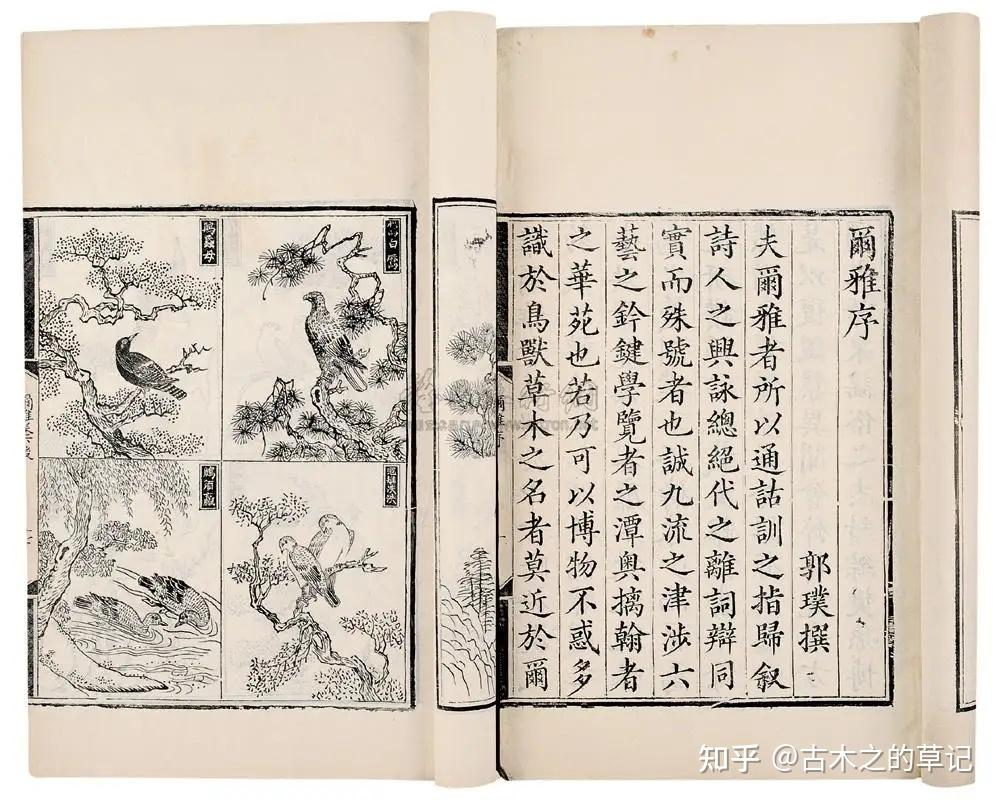 爾雅序
郭璞撰
夫爾雅者所以通詁訓之指歸叙
詩人之興詠總絕代之離詞辯同
實而殊號者也誠九流之津涉六
藝之鈐鍵學覽者之潭奧摛翰者
之華苑也若乃可以博物不惑多
識於鳥獸草木之名者莫近於爾
知乎 @古木之的草记